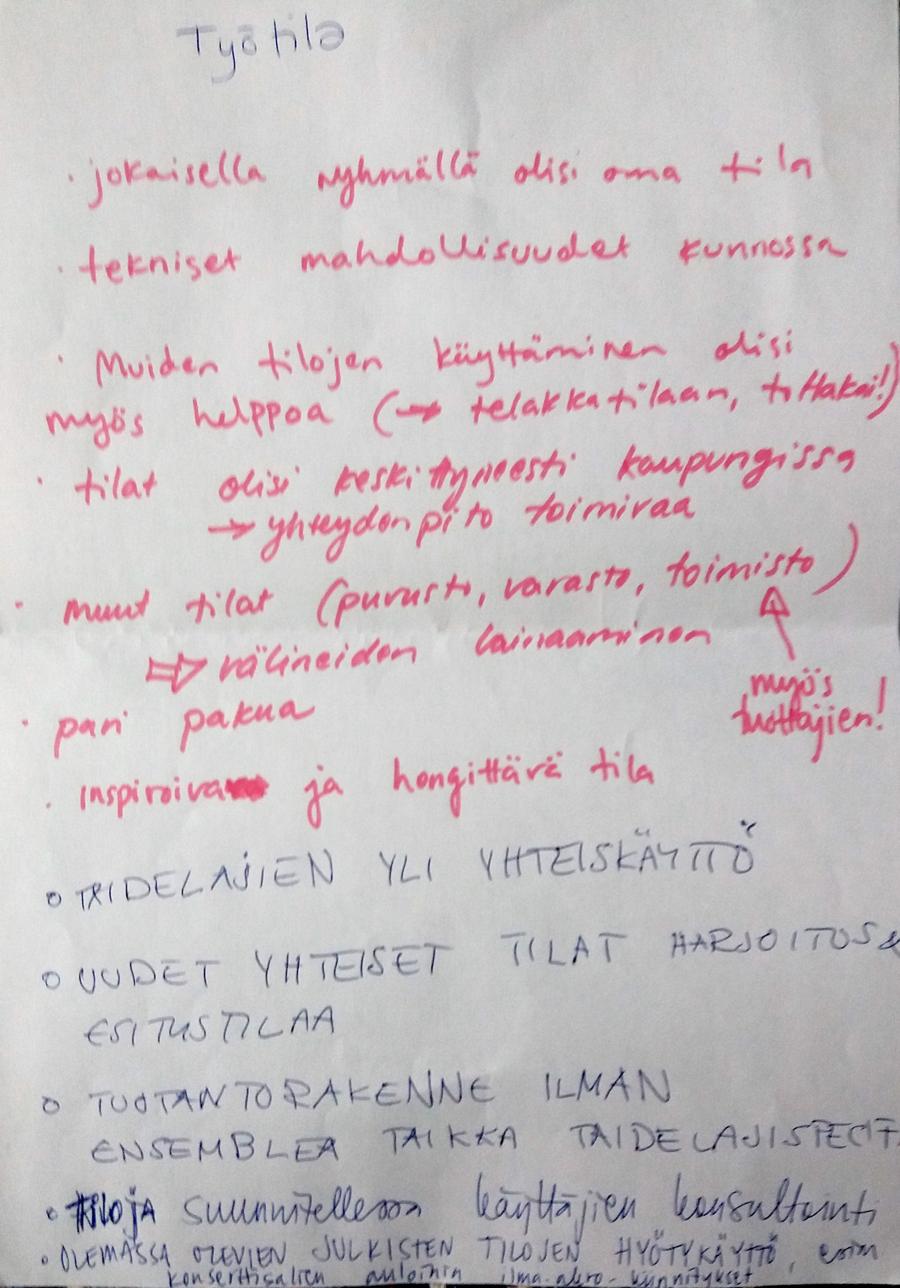 Työtila
· jokaisella ryhmällä olisi oma tila
· tekniset mahdollisuudet kunnossa
· Muiden tilojen käyttäminen olisi
myös helppoa (→ telakkatilaan, tottakai!)
· tilat olisi keskittyneesti kaupungissa
→ yhteydenpito toimivaa
· muut tilat (puvusto, varasto, toimisto)
⇒ välineiden lainaaminen
myös
tuottajien!
· pari pakua
· inspiroiva ja hengittävä tila
o TAIDELAJIEN YLI YHTEISKÄYTTÖ
o UUDET YHTEISET TILAT HARJOITUS&
ESITUSTILAA
o TUOTANTORAKENNE ILMAN
ENSEMBLEA TAIKKA TAIDELAJISPECIF
• tiloja suunnitellessa käyttäjien konsultointi
• OLEMASSA OLEVIEN JULKISTEN TILOJEN HYÖTYKÄYTTÖ, esim
konserttisalien auloihin ilma-akro-kiinnitykset